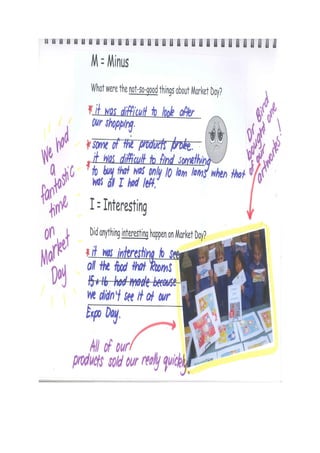 M = Minus
What were the not-so-good things about Market Day?
* it was difficult to look after
our shopping.
* some of the products broke.
* it was difficult to find something
to buy that was only 10 lam lams when that
was all I had left.
I = Interesting
Did anything interesting happen on Market Day?
* it was interesting to see
all the food that Rooms
15+16 had made because
we didn't see it at our
Expo Day.
We had
a
fantastic
time
on
Market
Day
Dr Bird
bought one
of our
artworks!
All of our
products sold out really quickly.